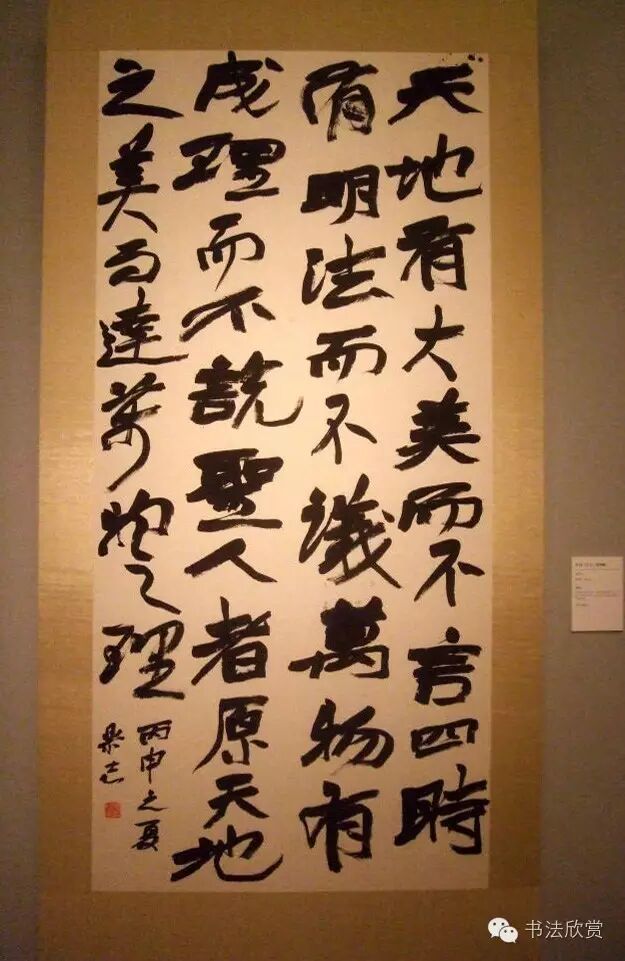 天地有大美而不言四時
有明法而不議萬物有
成理而不說聖人者原天地
之美而達萬物之理
丙申之夏
书法欣赏